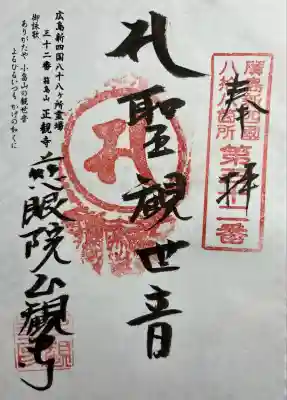 奉拝
廣島新四國
八拾八箇所
第三十二番
聖観世音
広島新四国八十八ヶ所霊場
三十二番 正観寺
御詠歌
ありがたや 山の観世音
よるひるいつもかげの如くに
慈眼院正観寺